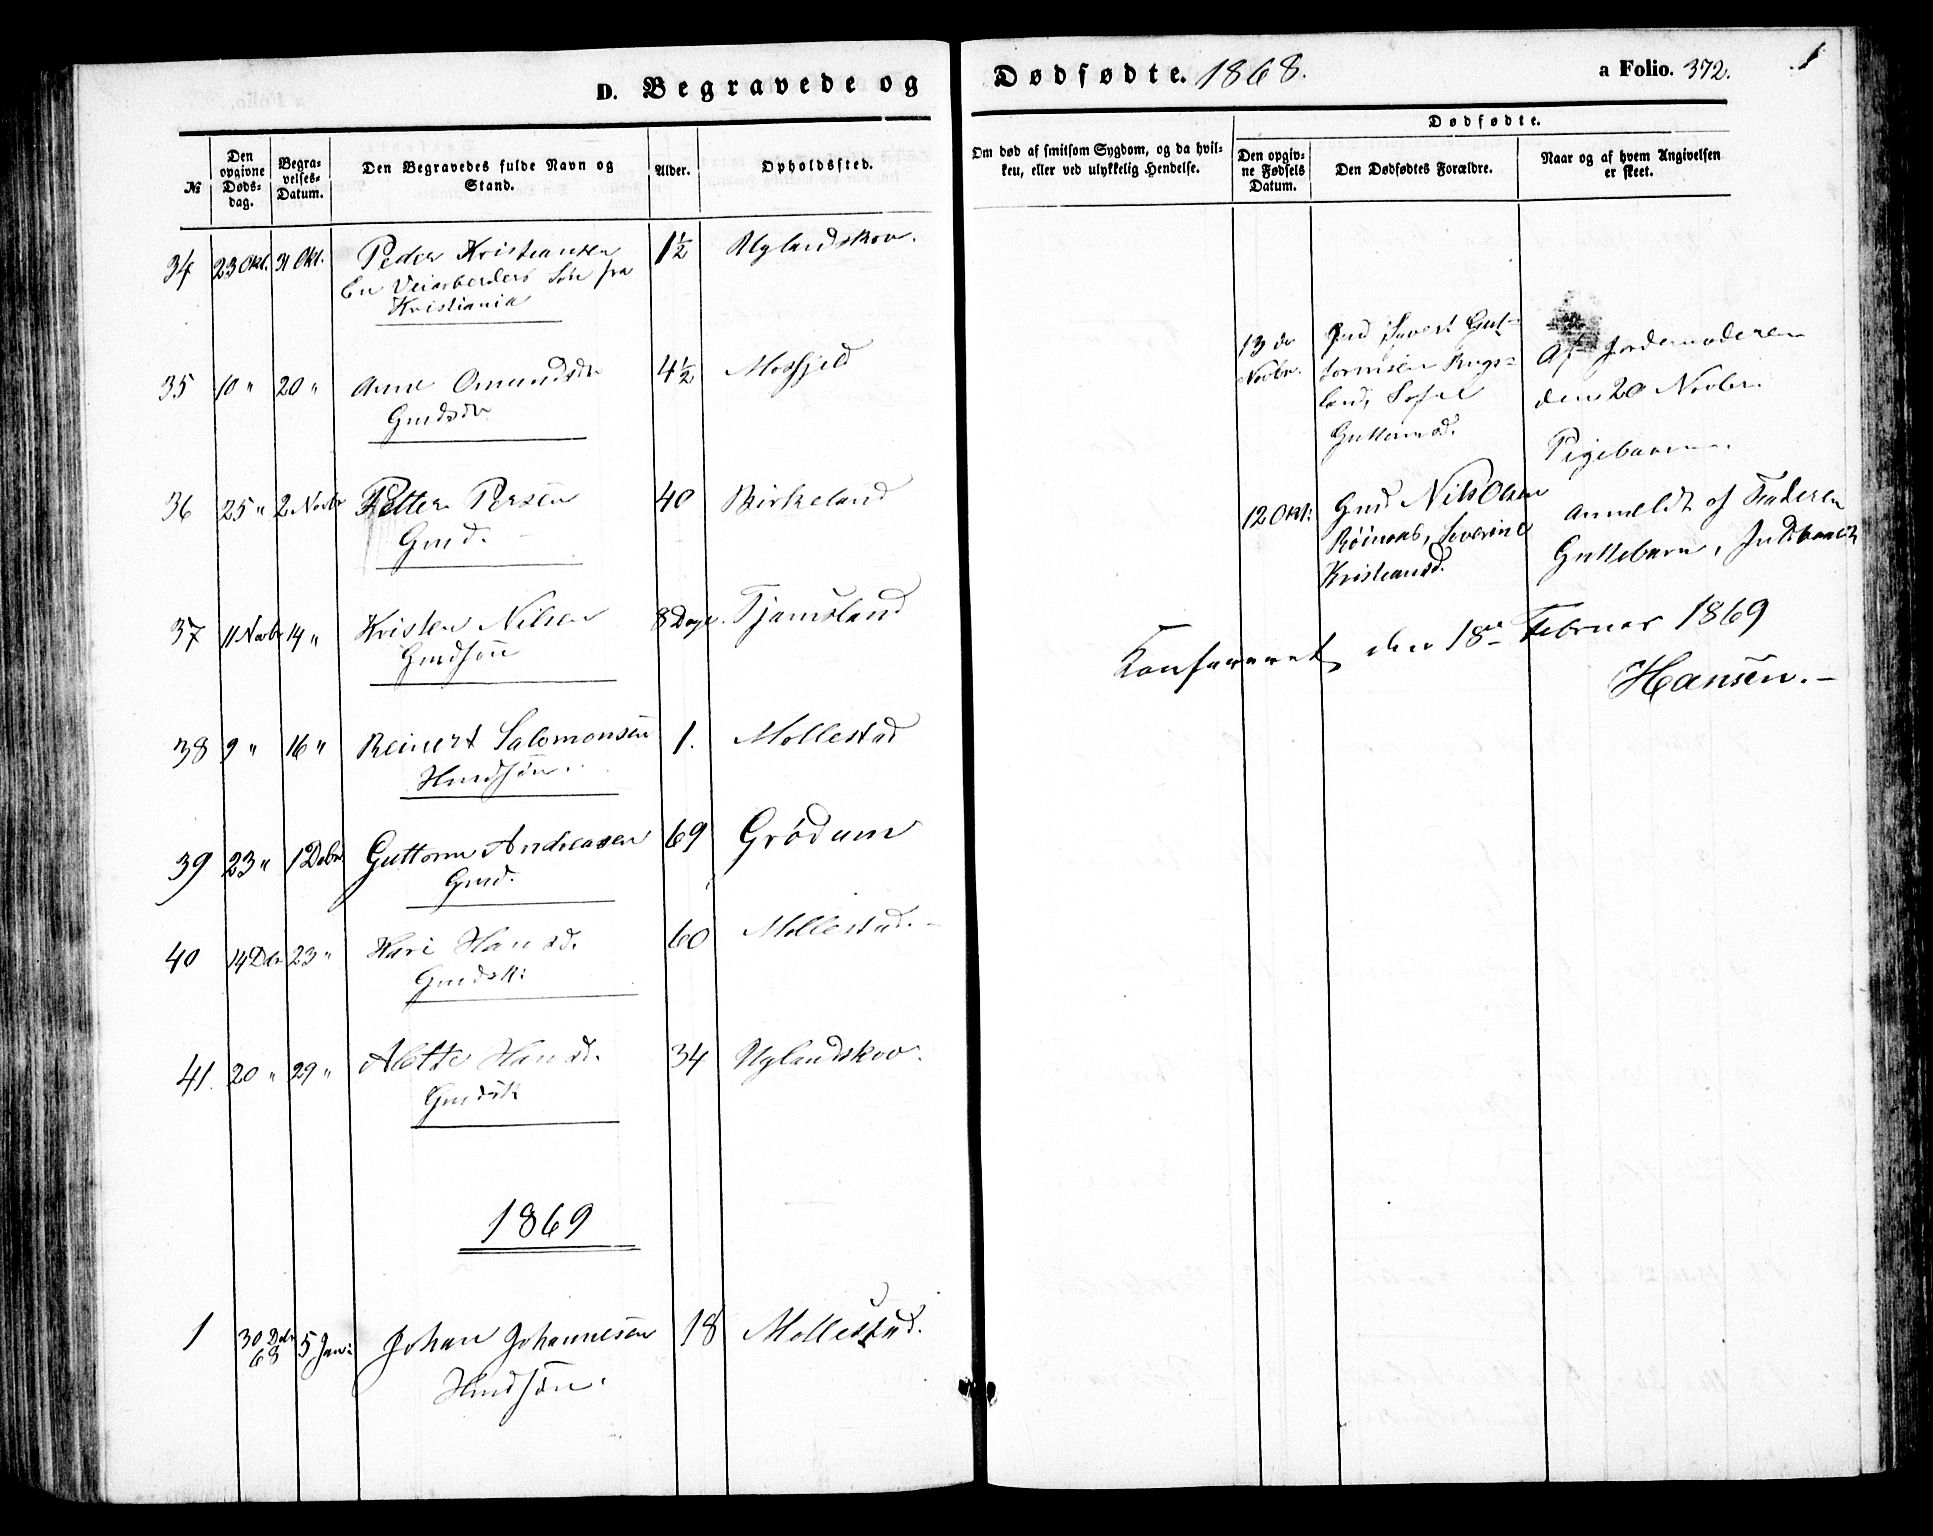 D. Begravede og
№
Den opgivne Døds-dag.
Begra-velses-Datum.
Den Begravedes fulde Navn og Stand.
Alder.
Opholdssted.
34 23 Okt. 31 Okt. Peder Kristiansen 1½ Uglandskov.
En Veiarbeiders Søn fra
Kristiania
35 10 " 20 " Anne Omundsdr 4½ Mosfjeld
Gmdsdr
36 25 " 2 Novbr Petter Persen 40 Birkeland
Gmd.
37 11 Novbr 14 " Kristen Nilsen 8 Dage. Tjamsland
Gmdsøn
38 9 " 16 " Reinert Salomonsen 1. Mollestad
Hmdsøn.
39 23 " 1 Debr Guttorm Andreasen 69 Grødum
Gmd.
40 14 Debr 23 " Kari Hansd. 60 Mollestad.
Gmdsk:
41. 20 " 29 " Alette Hansd. 34 Uglandskov.
Gmdsk
1869
1 30 Debr 68 5 Jan: Johan Johannesen 18 Mollestad.
Hmdsøn.
Dødfødte. 1868.
a Folio. 372.
1
Om død af smitsom Sygdom, og da hvil-
ken, eller ved ulykkelig Hendelse.
Dødfødte.
Den opgiv-ne Fødsels Datum.
Den Dødfødtes Forældre.
Naar og af hvem Angivelsen er skeet.
13 de Novbr.
Gmd Sivert Gut-
tormsen Rugs-
land, Sofie
Guttormsd.
Af Jordemoderen
den 20 Novbr.
Pigebarn.
12 Okt:
Gmd Nils Olsen
Røinaas, Severine
Kristiansd.
Anmeldt af Faderen
Guttebarn,
Konfereret den 18de Februar 1869
Hansen.